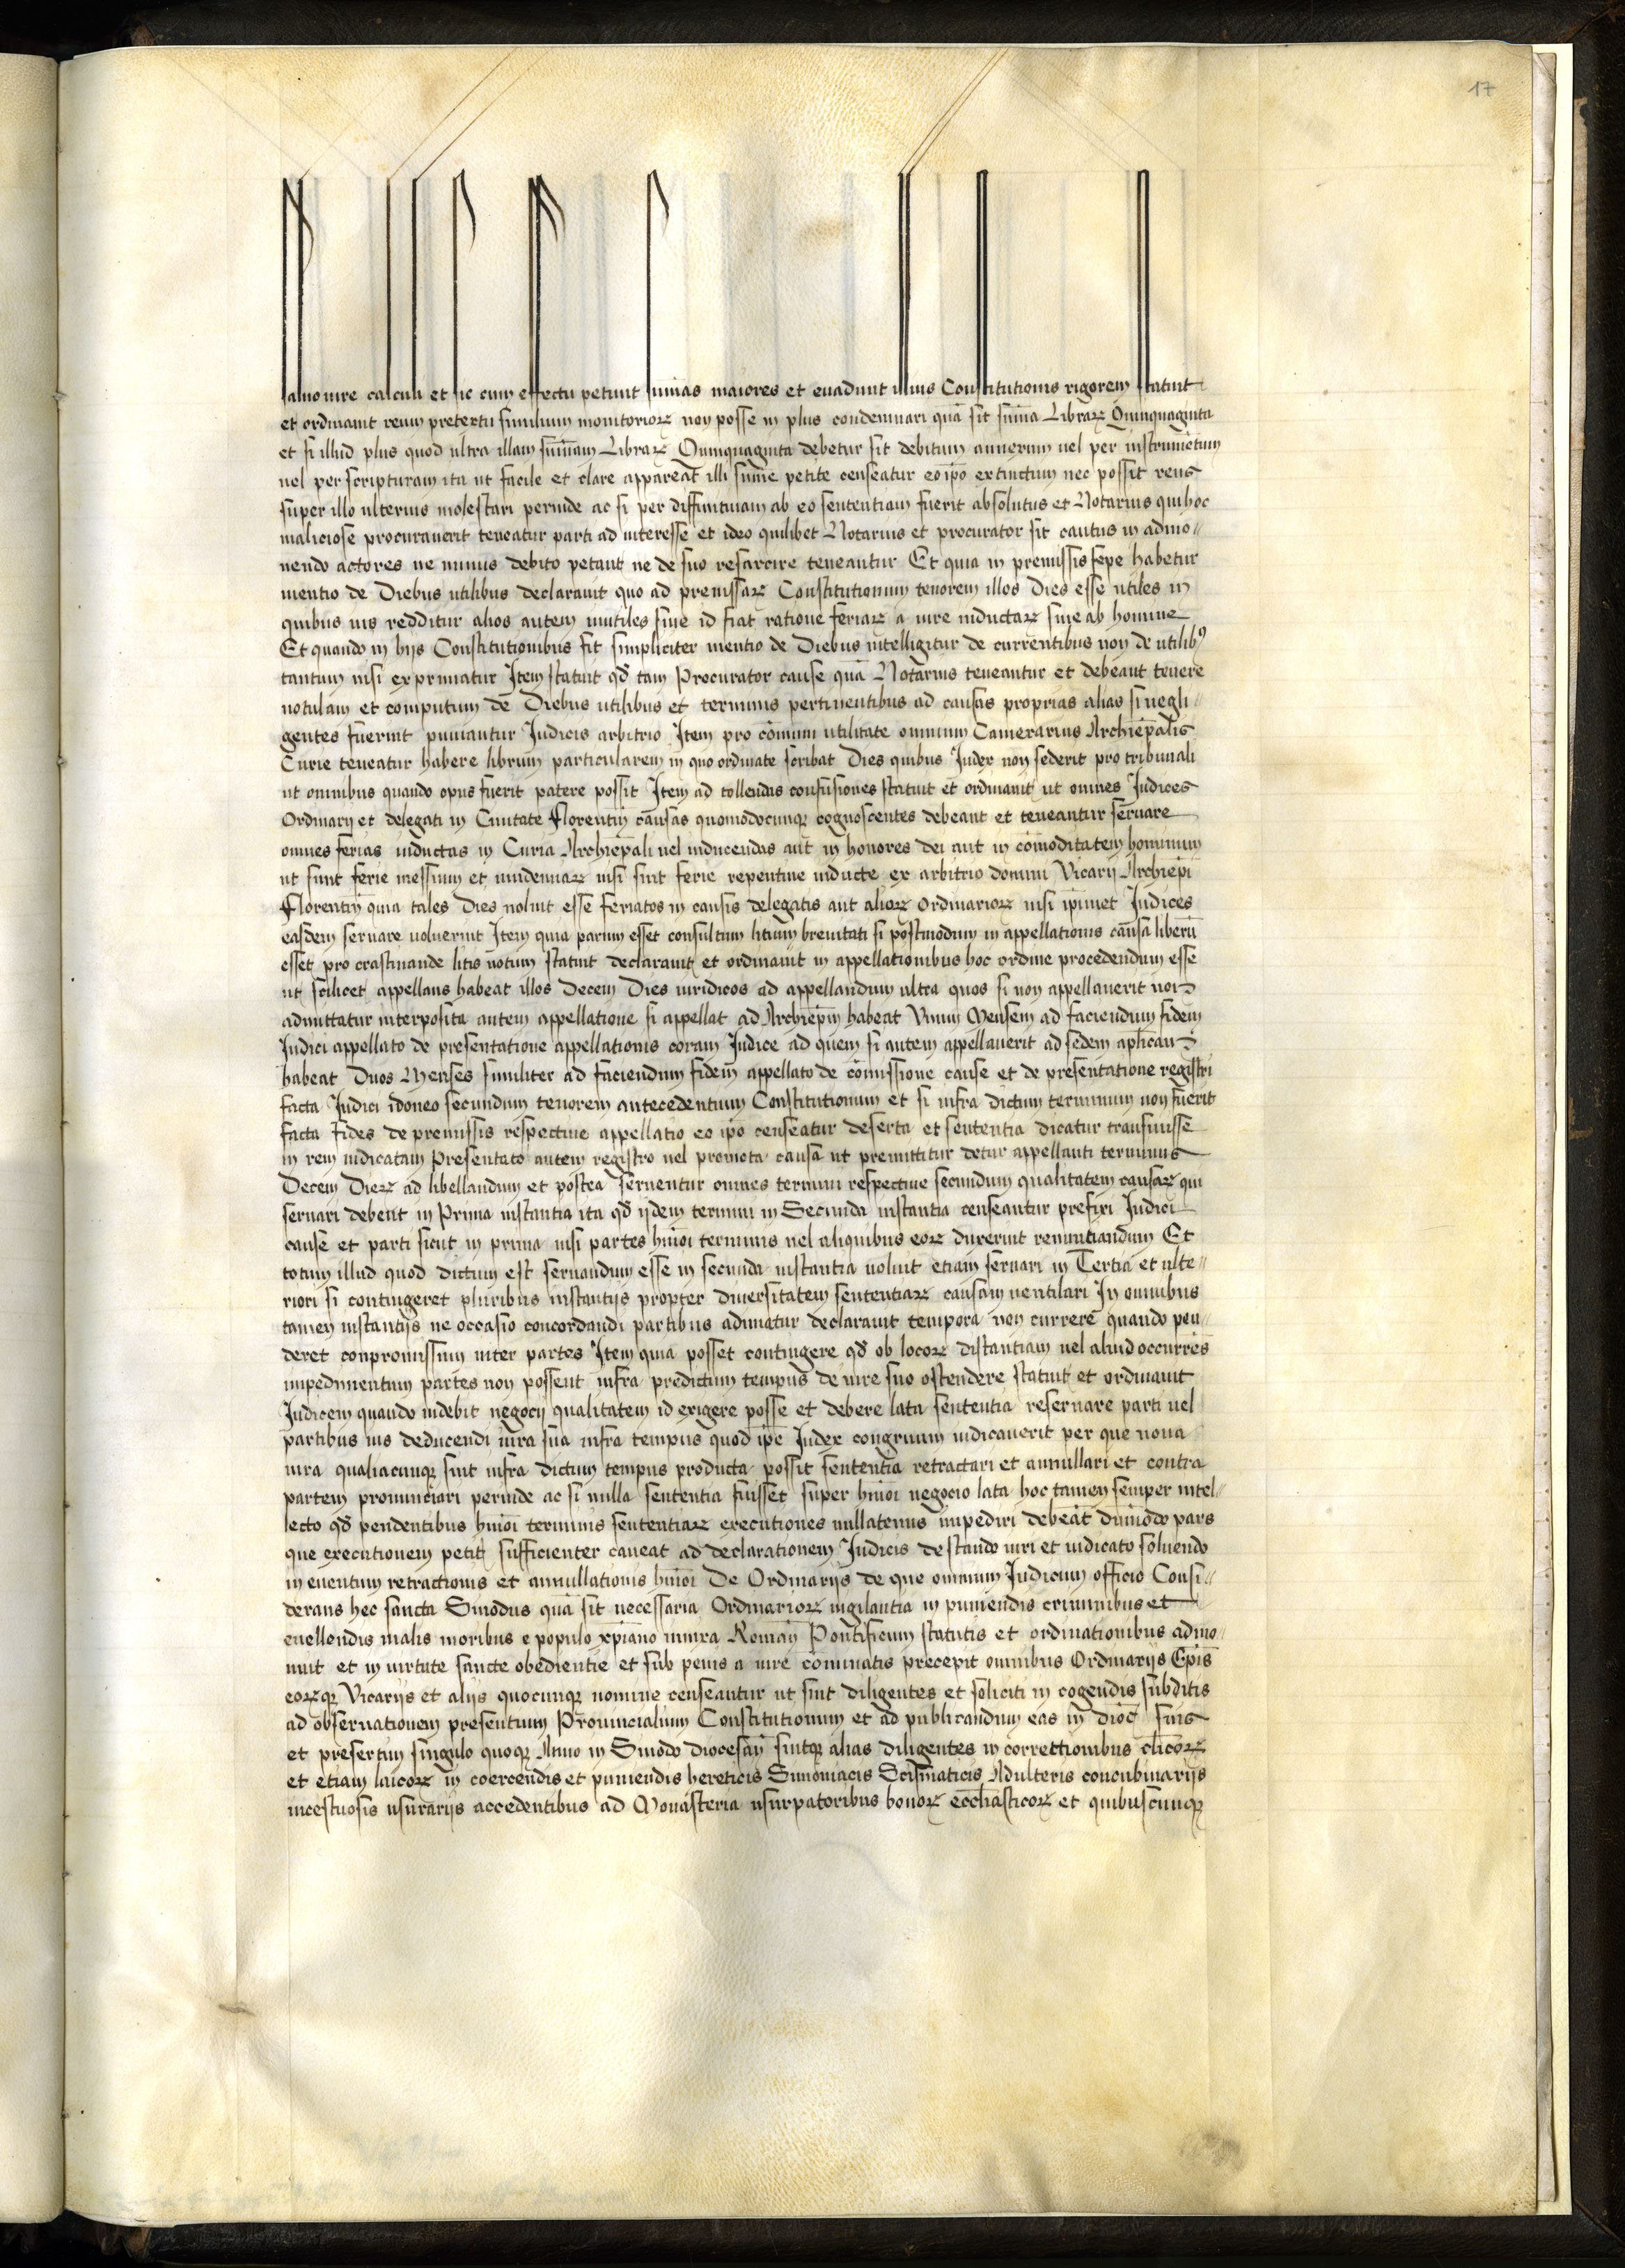 17
saluo iure calculi et sic cum effectu petunt sum̄as maiores et euadunt illius Constitutionis rigorem statuit
et ordinauit reum pretextu similium monitorioꝝ non posse in plus condemnari quā sit sum̄a Libraꝝ Quinquaginta
et si illud plus quod ultra illam sum̄am Libraꝝ Quinquaginta debetur sit debitum annexum uel per instrumētum
uel per scripturam ita ut facile et clare appareat illi sum̄e petite censeatur eo ip̄o extinctum nec possit reus
super illo ulterius molestari perinde ac si per diffinitiuam ab eo sententiam fuerit absolutus et Notarius qui hoc
maliciose procurauerit teneatur parti ad interesse et ideo quilibet Notarius et procurator sit cautus in admo-
nendo actores ne minus debito petant ne de suo resarcire teneantur Et quia in premissis sepe habetur
mentio de Diebus utilibus declarauit quo ad premissaꝝ Constitutionum tenorem illos Dies esse utiles in
quibus ius redditur alios autem inutiles siue id fiat ratione feriaꝝ a iure inductaꝝ siue ab homine
Et quando in hijs Constitutionibus fit simpliciter mentio de Diebus intelligitur de currentibus non de utilibꝰ
tantum nisi exprimatur Item statuit qđ tam Procurator cause quā Notarius teneantur et debeant tenere
notulam et computum de Diebus utilibus et terminis pertinentibus ad causas proprias alias si negli-
gentes fuerint puniantur Iudicis arbitrio Item pro cōmuni utilitate omnium Camerarius Archiep̄alis
Curie teneatur habere librum particularem in quo ordinate scribat Dies quibus Iudex non sederit pro tribunali
ut omnibus quando opus fuerit patere possit Item ad tollendas confusiones statuit et ordinauit ut omnes Iudices
Ordinarij et delegati in Ciuitate Florentin̄ causas quomodocunqꝫ cognoscentes debeant et teneantur seruare
omnes ferias inductas in Curia Archiep̄ali uel inducendas aut in honores dei aut in cōmoditatem hominum
ut sunt ferie messium et uindemiaꝝ nisi sint ferie repentine inducte ex arbitrio domini Vicarij Archiep̄i
Florentin̄ quia tales Dies noluit esse feriatos in causis delegatis aut alioꝝ Ordinarioꝝ nisi ip̄imet Iudices
easdem seruare uoluerint Item quia parum esset consultum litium breuitati si postmodum in appellationis causa liberū
esset pro crastinande litis uotum statuit declarauit et ordinauit in appellationibus hoc ordine procedendum esse
ut scilicet appellans habeat illos Decem Dies iuridicos ad appellandum ultra quos si non appellauerit non
admittatur interposita autem appellatione si appellat ad Archiep̄m habeat Vnum Mensem ad faciendum fidem
Iudici appellato de presentatione appellationis coram Iudice ad quem si autem appellauerit ad sedem apl̄icam
habeat Duos Menses similiter ad faciendum fidem appellato de cōmissione cause et de presentatione registri
facta Iudici idoneo secundum tenorem antecedentium Constitutionum et si infra dictum terminum non fuerit
facta Fides de premissis respectiue appellatio eo ip̄o censeatur deserta et sententia dicatur transiuisse
in rem iudicatam Presentato autem registro uel promota causa ut premittitur detur appellanti terminus
Decem Dieꝝ ad libellandum et postea seruentur omnes termini respectiue secundum qualitatem causaꝝ qui
seruari debent in Prima instantia ita qđ ijdem termini in Secunda instantia censeantur prefixi Iudici
cause et parti sicut in prima nisi partes hm̄oi terminis uel aliquibus eoꝝ duxerint renuntiandum Et
totum illud quod dictum est seruandum esse in secunda instantia uoluit etiam seruari in Tertia et ulte-
riori si contingeret pluribus instantijs propter diuersitatem sententiaꝝ causam uentilari In omnibus
tamen instantijs ne occasio concordandi partibus adimatur declarauit tempora non currere quando pen-
deret compromissum inter partes Item quia posset contingere qđ ob locoꝝ distantiam uel aliud occurrēs
impedimentum partes non possent infra predictum tempus de iure suo ostendere statuit et ordinauit
Iudicem quando uidebit negocij qualitatem id exigere posse et debere lata sententia reseruare parti uel
partibus ius deducendi iura sua infra tempus quod ip̄e Iudex congruum iudicauerit per que noua
iura qualiacunqꝫ sint infra dictum tempus producta possit sententia retractari et annullari et contra
partem pronunciari perinde ac si nulla sententia fuisset super hm̄oi negocio lata hoc tamen semper intel-
lecto qđ pendentibus hm̄oi terminis sententiaꝝ executiones nullatenus impediri debeāt dūmodo pars
que executionem petit sufficienter caueat ad declarationem Iudicis de stando iuri et iudicato soluendo
in euentum retractionis et annullationis hm̄oi De Ordinarijs de que omnium Iudicum officio Consi-
derans hec sancta Sinodus quā sit necessaria Ordinarioꝝ uigilantia in puniendis criminibus et
euellendis malis moribus e populo xp̄iano iuxta Roman̄ Pontificum statutis et ordinationibus admo-
nuit et in uirtute sancte obedientie et sub penis a iure cōminatis precepit omnibus Ordinarijs Ep̄is
eoꝝqꝫ Vicarijs et alijs quocunqꝫ nomine censeantur ut sint diligentes et soliciti in cogendis subditis
ad obseruationem presentium Prouincialium Constitutionum et ad publicandum eas in dioc̄ suis
et presertim singulo quoqꝫ Anno in Sinodo diocesan̄ sintqꝫ alias diligentes in correctionibus cl̄icoꝝ
et etiam laicoꝝ in coercendis et puniendis hereticis Simoniacis Scismaticis Adulteris concubinarijs
incestuosis usurarijs accedentibus ad Monasteria usurpatoribus bonoꝝ eccl̄iasticoꝝ et quibuscunqꝫ